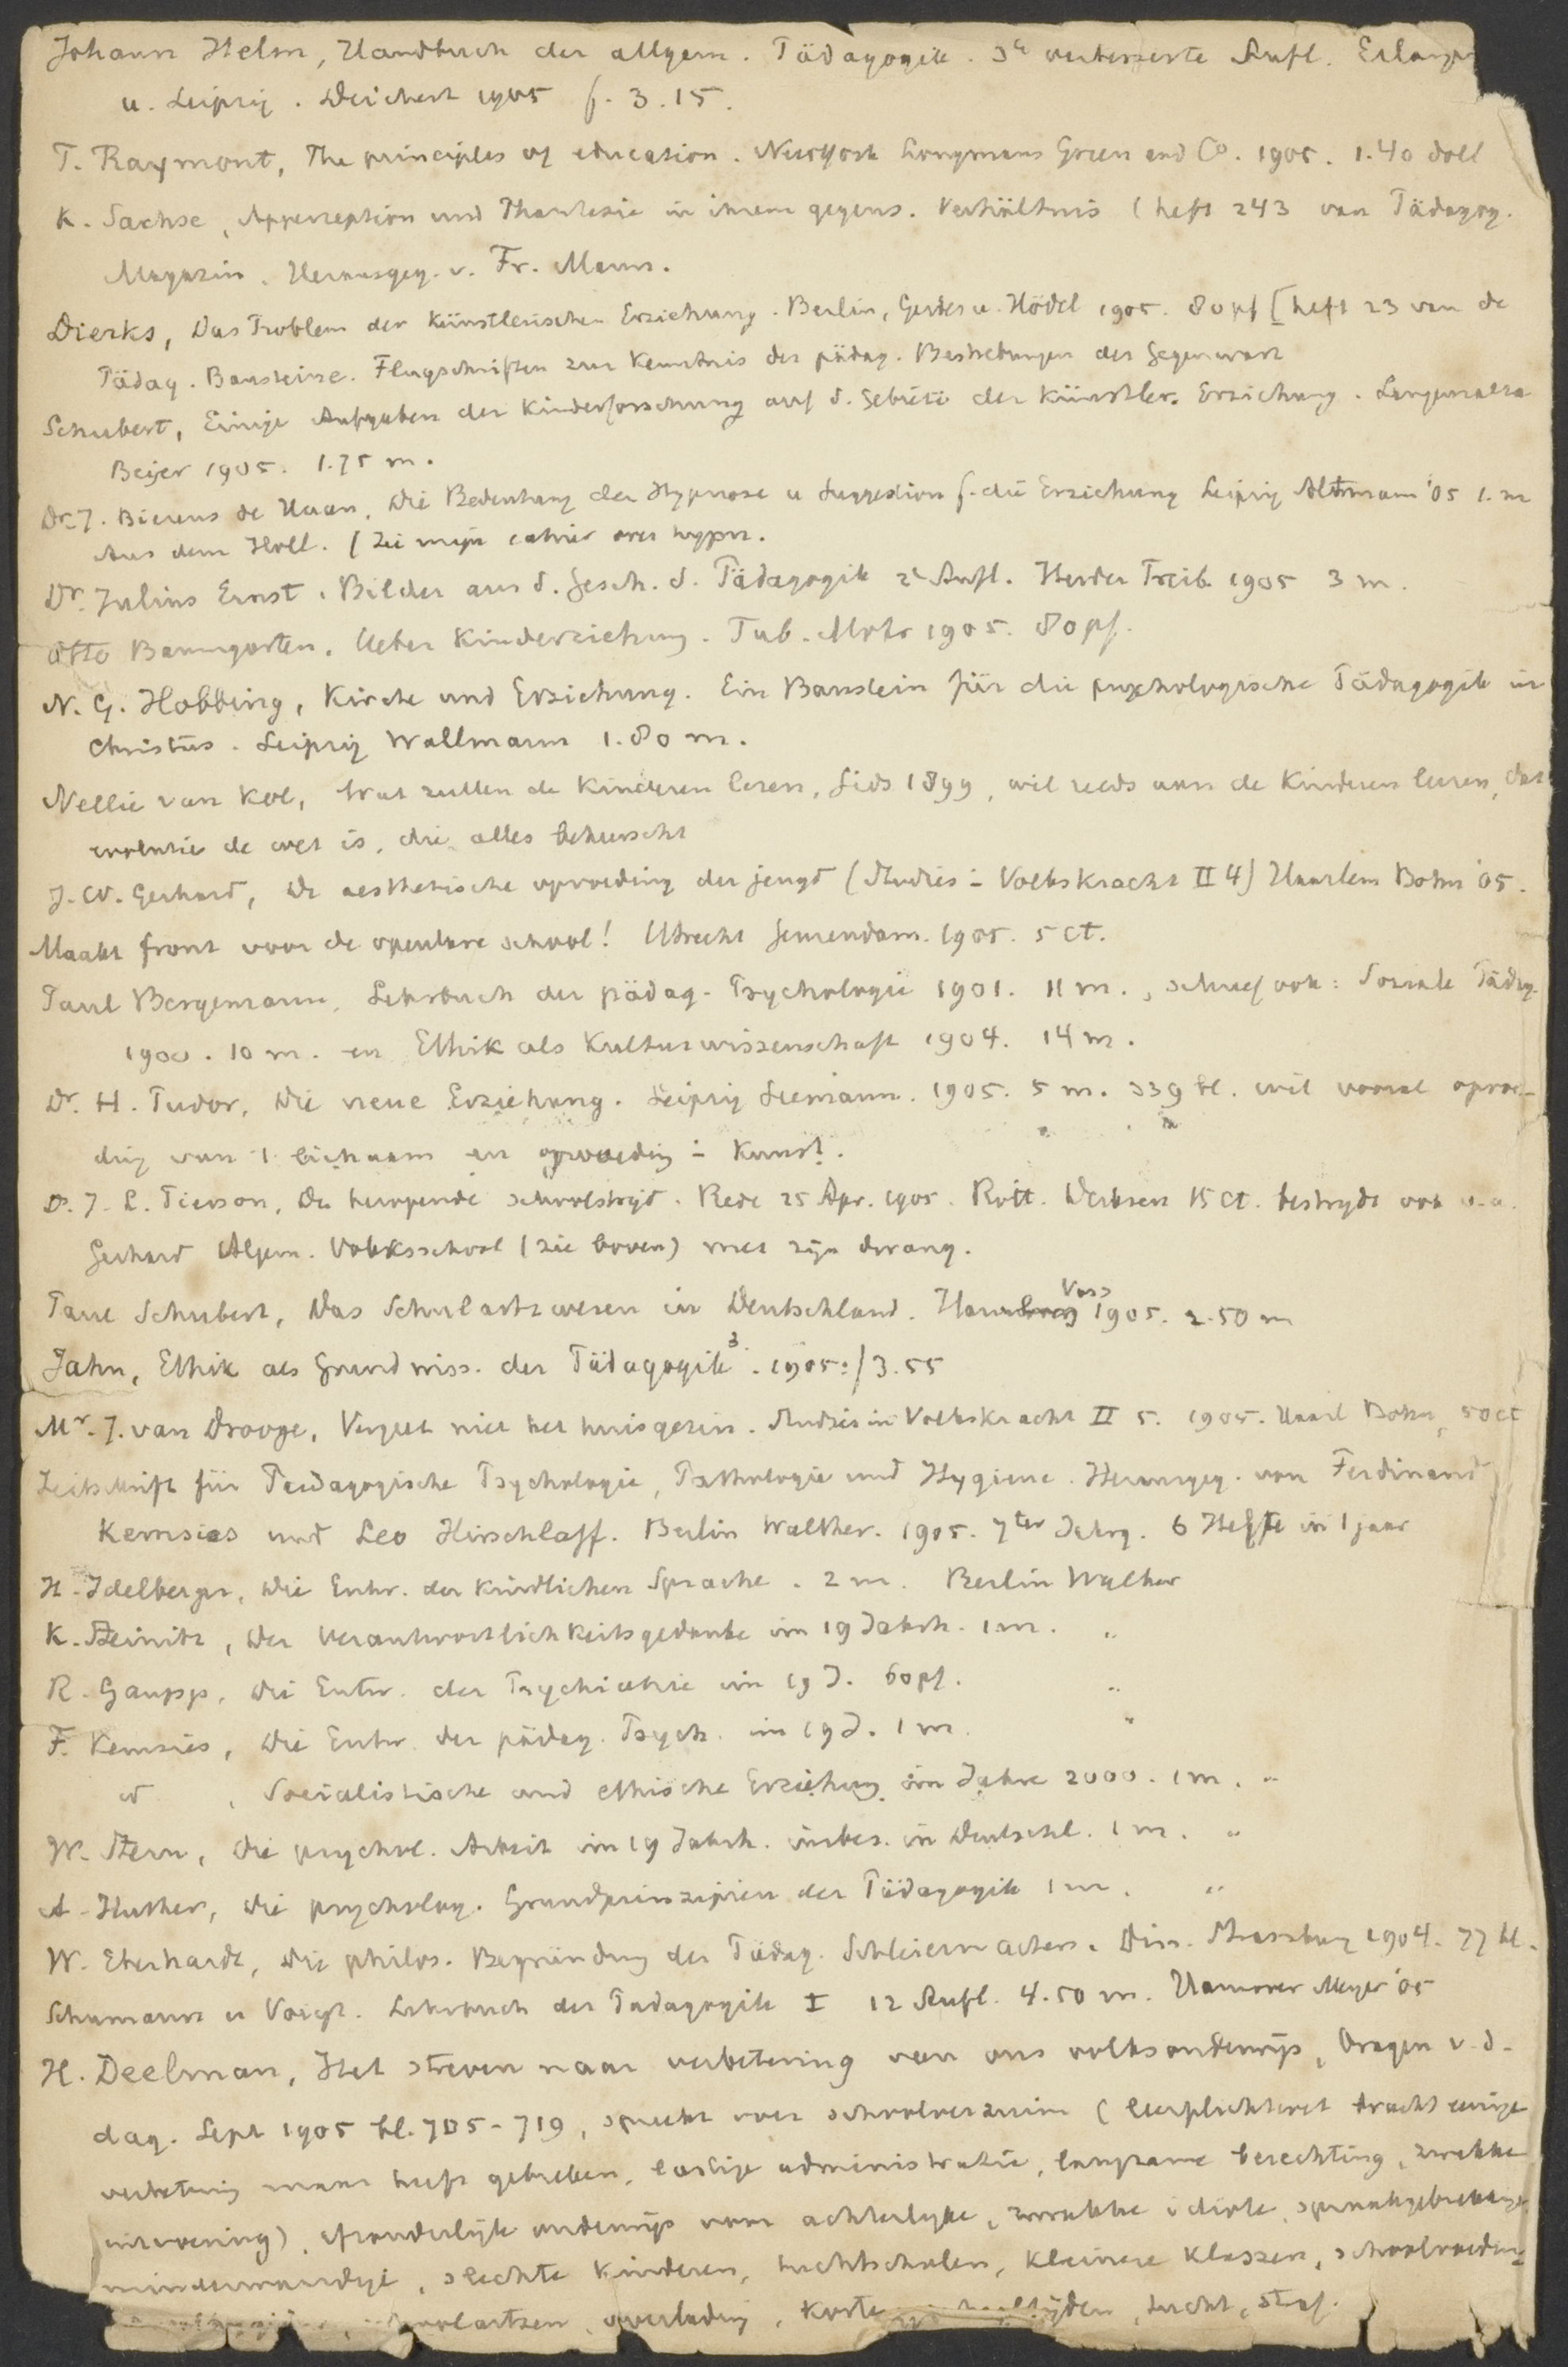 Johann Helm, Handbuch der allgem. Pädagogik. 3e verbesserte Aufl. Erlangen
u. Leipzig. Deichert 1905 f. 3.15.
T. Raymont, The principles of education. New York Longmans Green and Co. 1905. 1.40 doll
K. Sachse, Apperception und Phantasie in ihrem gegens. Verhältnis (heft 243 van Pädagog.
Magazin. Herausgeg. v. Fr. Mann.
Dierks, Das Problem der Künstlerischen Erziehung. Berlin, Gerdes u. Hödel 1905. 80 pf [heft 23 van de
Pädag. Bausteine. Flugschriften zur Kenntnis der pädag. Bestrebungen der Gegenwart
Schubert, Einige Aufgaben der Kinderforschung auf d. Gebiete der Künstler. Erziehung. Langensalza
Beijer 1905. 1.75 m.
Dr. J. Bierens de Haan, Die Bedeutung der Hypnose u Suggestion f. die Erziehung Leipzig Altmann '05 1. m
Aus dem Holl. (Zie mijn cahier over hypn.
Dr. Julius Ernst. Bilder aus d. Gesch. d. Pädagogik 2e Aufl. Herder Freib. 1905 3 m.
Otto Baumgarten, Ueber Kindererziehung. Tub. Mohr 1905. 80 pf.
N. G. Hobbing, Kirche und Erziehung. Ein Baustein für die psychologische Pädagogik in
Christus. Leipzig Wallmann 1.80 m.
Nellie van Kol, Wat zullen de Kinderen lezen, Gids 1899, wil reeds aan de Kinderen leeren, dat
evolutie de wet is, die alles beheerscht
J. W. Gerhard, De aesthetische opvoeding der jeugd (Studies i Volkskracht II 4) Haarlem Bohn '05.
Maakt front voor de openbare school! Utrecht 1905. 5 ct.
Paul Bergemann, Lehrbuch der pädag. Psychologie 1901. 11 m., schreef ook: Soziale Pädag.
1900. 10 m. en Ethik als Kulturwissenschaft 1904. 14 m.
Dr. H. Pudor, Die neue Erziehung. Leipzig Seemann. 1905. 5 m. 339 bl. wil vooral opvoe-
ding van 't lichaam en opvoeding i Kunst.
Ds. J. L. Pierson, De herrijzende schoolstrijd. Rede 25 Apr. 1905. Rott. 15 ct. bestrijdt ook o.a.
Gerhard Algem. Volksschool (zie boven) met zijn dwang.
Paul Schubert, Das Schularztwesen in Deutschland. Hamburg Voss 1905. 2.50 m
Jahn, Ethik als Grundwiss. der Pädagogik 3. 1905. f 3.55
Mr. J. van Drooge, Vergeet niet het huisgezin. Studies in Volkskracht II 5. 1905. Haarl Bohn, 50 ct
Zeitschrift für Paedagogische Psychologie, Pathologie und Hygiene. Herausgeg. von Ferdinand
Kemsies und Leo Hirschlaff. Berlin Walther. 1905. 7ter Jahrg. 6 Hefte in 1 jaar
H. Idelberger, Die Entw. der Kindlichen Sprache. 2 m. Berlin Walther
K. Steinitz, Der Verantwortlichkeitsgedanke im 19 Jahrh. 1 m. "
R. Gaupp, Die Entw. der Psychiatrie im 19 J. 60 pf. "
F. Kemsies, Die Entw. der pädag. Psych. im 19 J. 1 m. "
id, Socialistische und ethische Erziehung im Jahre 2000. 1 m. "
W. Stern, Die psychol. Arbeit im 19 Jahrh. insbes. in Deutschl. 1 m. "
A. Huther, Die psycholog. Grundprinzipien der Pädagogik 1 m. "
W. Eberhardt, Die philos. Begründung der Pädag. Schleiermachers. Diss. Strassburg 1904. 77 bl.
Schumann u Voigt. Lehrbuch der Padagogik I 12 Aufl. 4.50 m. Hannover Meyer '05
H. Deelman, Het streven naar verbetering van ons volksonderwijs, Vragen v. d.
dag. Sept 1905 bl. 705-719, spreekt over schoolverzuim (leerplichtwet bracht eenige
verbetering maar heeft gebreken, lastige administratie, langzame berechting, zwakke
uitvoering), afzonderlijk onderwijs voor achterlijke, zwakke idiote, spraakgebrekkige
minderwaardige, slechte Kinderen, tuchtscholen, kleinere Klassen, schoolvoeding
schoolartsen, overlading, korte tijden, tucht, straf.